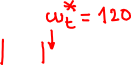 ω*t = 120